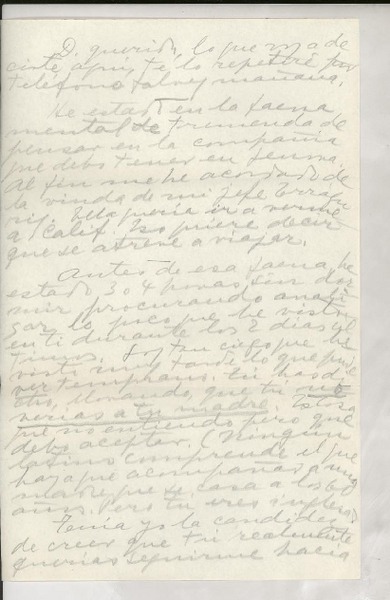 D. querida, lo que voy a de
cirte aquí, te lo repetiré por
teléfono tal vez mañana.
He estado en la faena
mental de tremenda de
pensar en la compañía
que debo tener en
Al fin me he acordado de
la viuda de mi jefe
Ella quería ir a verme
a Calif. Eso quiere decir
que se atreve a viajar.
Antes de esa faena, he
estado 3 o 4 horas sin dor
mir procurando anali
zar lo poco que he visto
en ti durante los 2 días úl
timos. Soy tan ciega que he
visto muy tarde lo que pude
ver temprano. Tú has d
cho, llorando, que tú
verías a tu madre. Es cosa
que no entiendo pero que
debo aceptar. (Ningún
latino comprende el que
haya que acompañar a una
madre que se casa a los 60
años. Pero tú eres inglesa)
Tenía yo la candidez
de creer que tú realmente
querías seguirme hacia